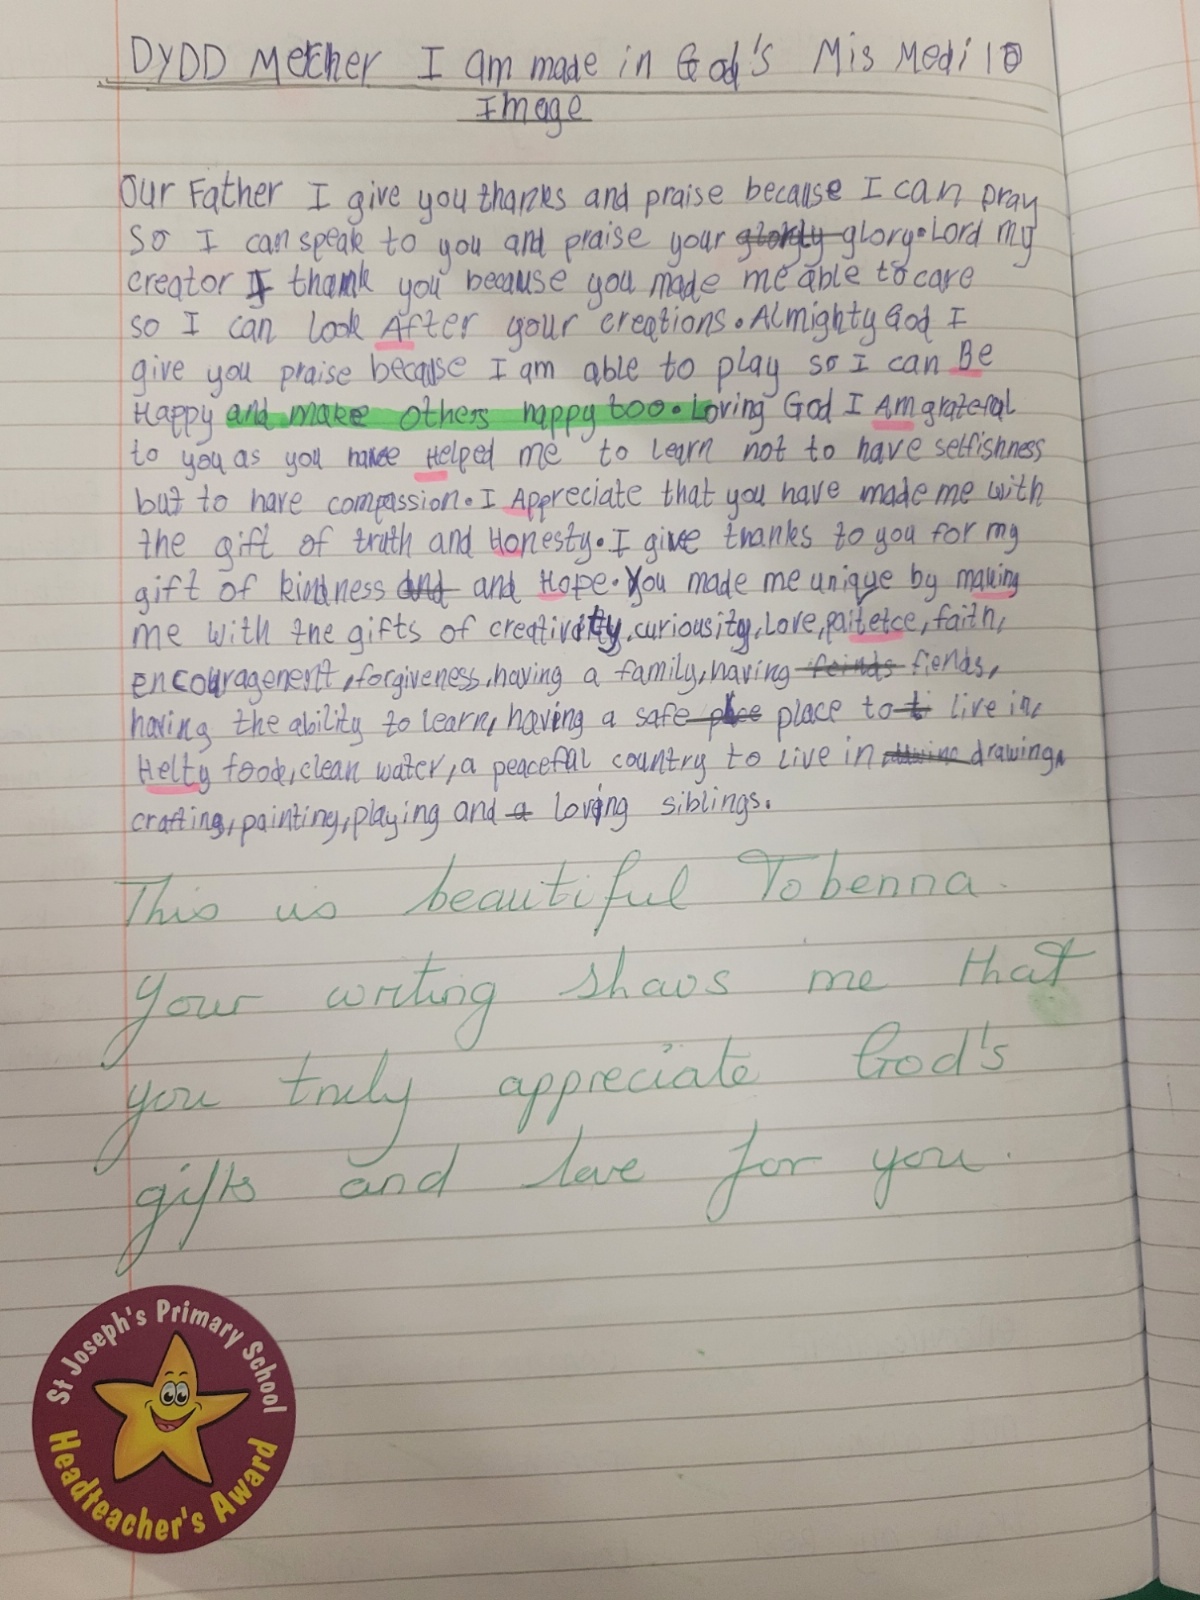 DYDD Mercher I am made in God's Mis Medi 10
Image
Our Father I give you thanks and praise because I can pray
so I can speak to you and praise your glory. Lord my
creator I thank you because you made me able to care
so I can look After your creations. Almighty God I
give you praise because I am able to play so I can Be
Happy and make others happy too. Loving God I Am grateral
to you as you have Helped me to learn not to have selfishness
but to have compassion. I Appreciate that you have made me with
the gift of truth and Honesty. I give thanks to you for my
gift of kindness and and Hope. You made me unique by making
me with the gifts of creativitty, curiousity, Love, paitetce, faith,
encouragenent, forgiveness, having a family, having feinds fiends,
having the ability to learn, having a safe plce place to t live in,
Helty food, clean water, a peaceful country to live in drawing,
crafting, painting, playing and a loving siblings.
This is beautiful Tobenna.
Your writing shows me that
you truly appreciate God's
gifts and love for you.
St Joseph's Primary School
Headteacher's Award